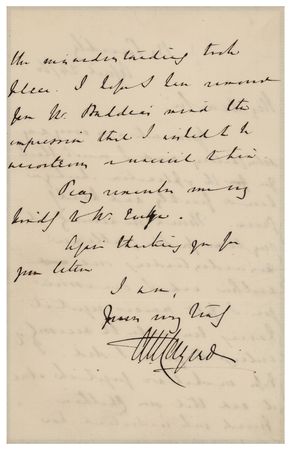 the misunderstanding took
place. I hope I have removed
from Mr. mind the
impression that I wished to
 to him
Pray remember me very
kindly to Mr.
Again thanking you for
your letter
I am,
Yours very truly